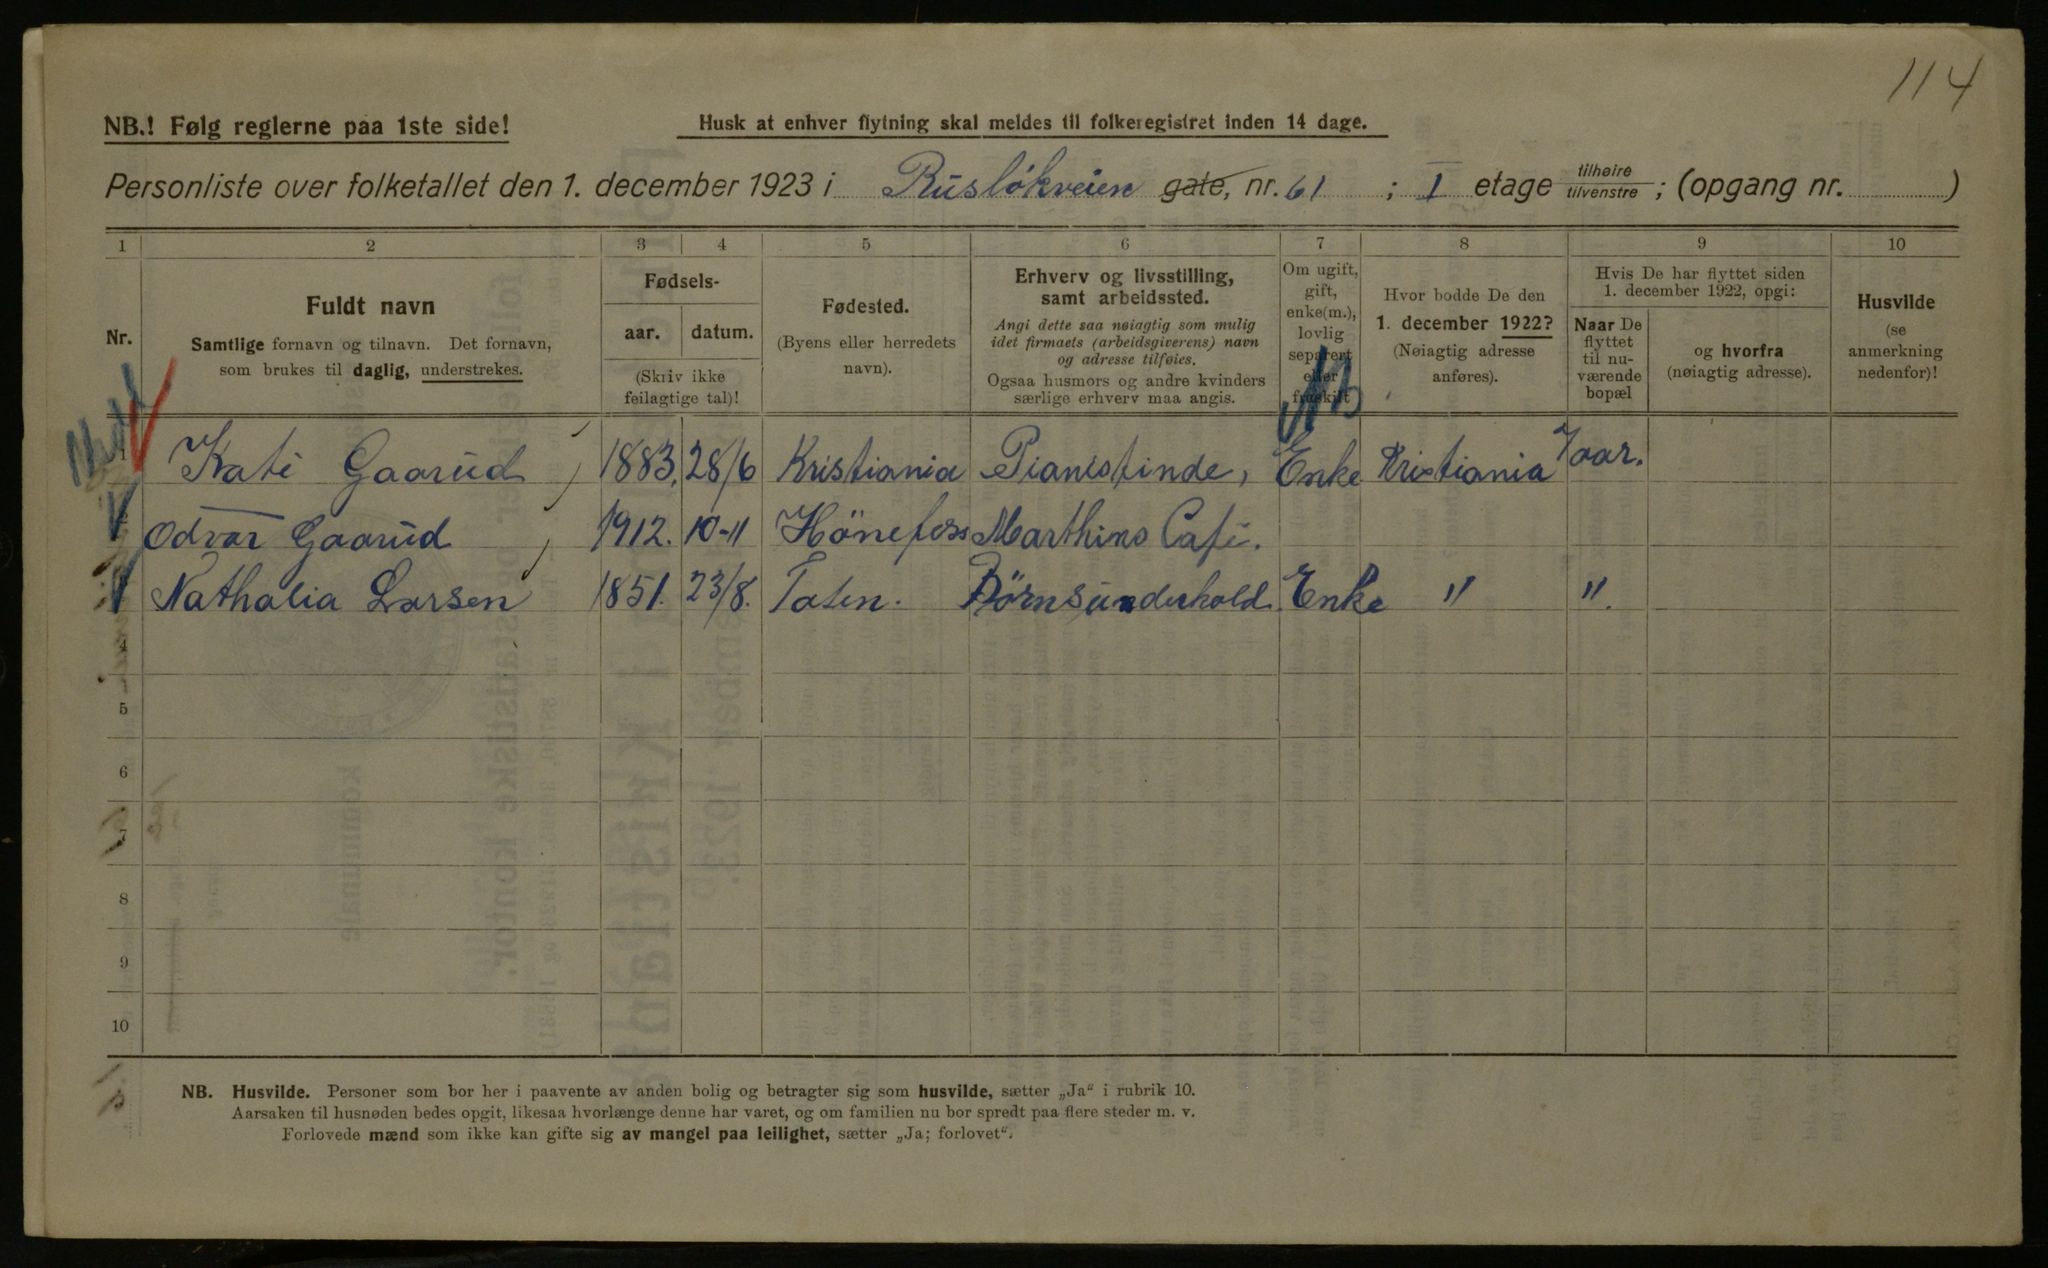 114
NB.! Følg reglerne paa 1ste side!
Husk at enhver flytning skal meldes til folkeregistret inden 14 dage.
Personliste over folketallet den 1. december 1923 i Rusløkveien gate, nr. 61 ; I etage tilhøire tilvenstre ; (opgang nr. )
1 2 3 4 5 6 7 8 9 10
Nr.
Fuldt navn
Samtlige fornavn og tilnavn. Det fornavn,
som brukes til daglig, understrekes.
Fødsels-
aar. datum.
(Skriv ikke
feilagtige tal)!
Fødested.
(Byens eller herredets
navn).
Erhverv og livsstilling,
samt arbeidssted.
Angi dette saa nøiagtig som mulig
idet firmaets (arbeidsgiverens) navn
og adresse tilføies.
Ogsaa husmors og andre kvinders
særlige erhverv maa angis.
Om ugift,
gift,
enke(m.),
lovlig
separert
eller
fraskilt
Hvor bodde De den
1. december 1922?
(Nøiagtig adresse
anføres).
Hvis De har flyttet siden
1. december 1922, opgi:
Naar De
flyttet
til nu-
værende
bopæl
og hvorfra
(nøiagtig adresse).
Husvilde
(se
anmerkning
nedenfor)!
1 Kati Gaarud 1883. 28/6 Kristiania Pianistinde, Enke Kristiania 7 aar.
2 Odvar Gaarud 1912. 10-11 Hönefoss Marthins Café.
Nathalia Larsen 1851. 23/8. Toten. Börnsunderhold. Enke " ".
4
5
6
7
8
9
10
NB. Husvilde. Personer som bor her i paavente av anden bolig og betragter sig som husvilde, sætter „Ja“ i rubrik 10.
Aarsaken til husnøden bedes opgit, likesaa hvorlænge denne har varet, og om familien nu bor spredt paa flere steder m. v.
Forlovede mænd som ikke kan gifte sig av mangel paa leilighet, sætter „Ja; forlovet“.